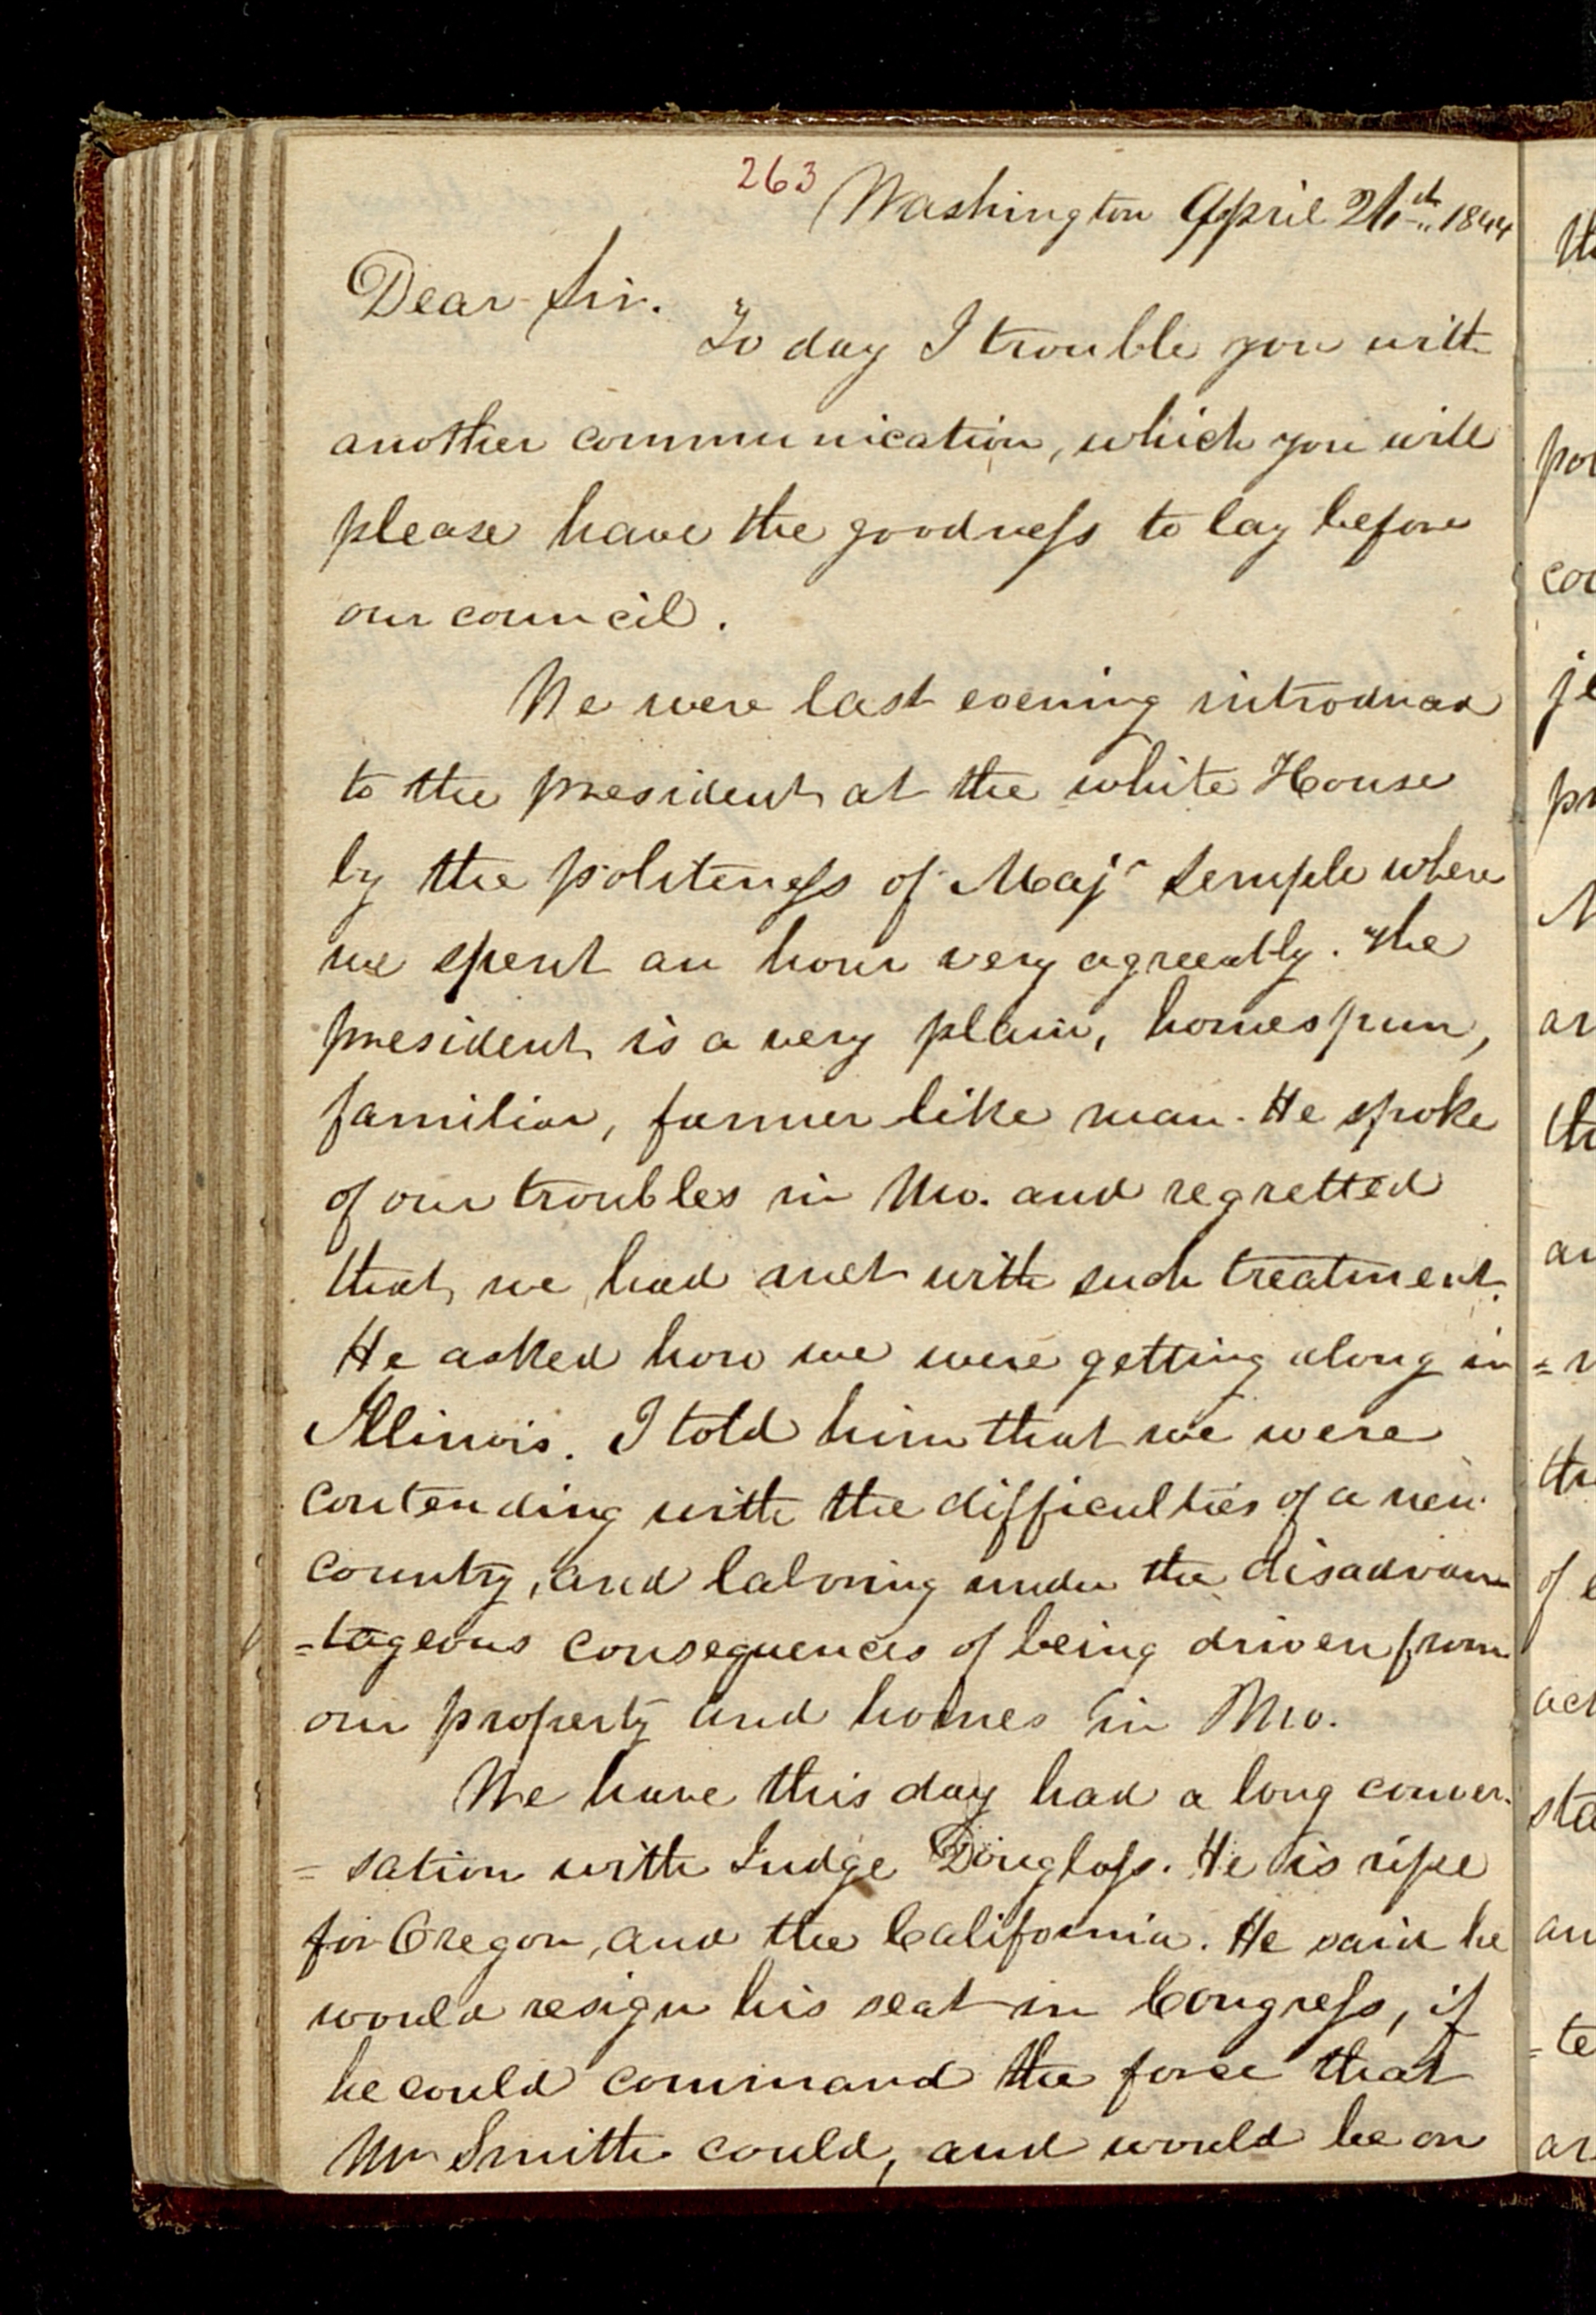 263
Washington April 26th 1844
Dear Sir.
To day I trouble you with
another communication, which you will
please have the goodness to lay before
our council.
We were last evening introduced
to the president at the white House
by the politeness of Majr Semple where
we spent an hour very agreeably. The
president is a very plain, homespun,
familiar, farmer like man. He spoke
of our troubles in Mo. and regretted
that we had met with such treatment.
He asked how we were getting along in
Illinois. I told him that we were
contending with the difficulties of a new
country, and laboring under the disadvan
=tageous consequences of being driven from
our property and homes in Mo.
We have this day had a long conver-
=sation with Judge Douglass. He is ripe
for Oregon, and the California. He said he
would resign his seat in Congress, if
he could command the force that
Mr Smith could, and would be on